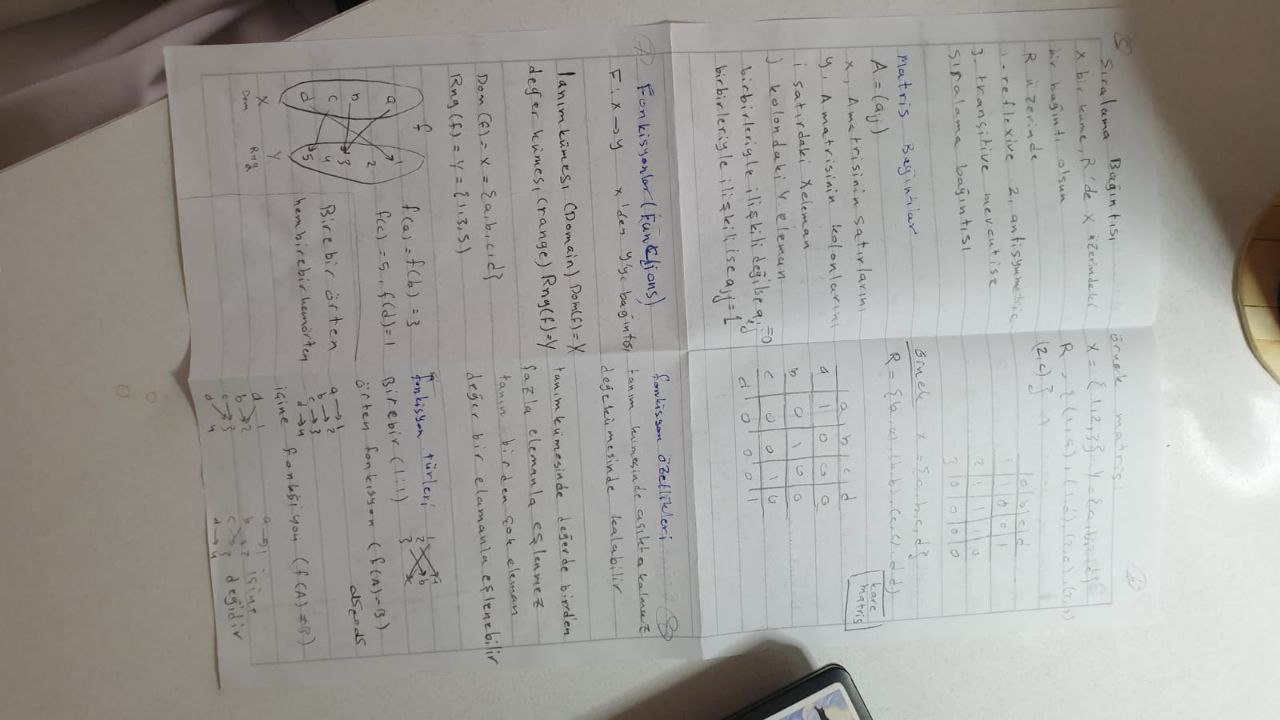 5
Sıralama Bağıntısı
X bir küme, R'de X üzerindeki
bir bağıntı olsun
R üzerinde
1-reflexive 2, antisymmetric
3, transitive mevcutise
sıralama bağıntısı
Matris Bağıntılar
A = (aij)
x, A matrisinin satırlarını
y, A matrisinin kolonlarını
i satırdaki x eleman
j kolondaki y eleman
birbirleriyle ilişkili değilse aij=0
birbirleriyle ilişkili ise aij=1
örnek matrisi
X = {1,2,3}
R = {(1,a), (1,d), (2,a), (2,b)
(2,c)}
a b c d
1 1 0 0 1
2 1 1 1 0
3 0 0 0 0
örnek x={a,b,c,d}
R = {(a,a), (b,b), (c,c), (d,d)}
kare
matris
a b c d
a 1 0 0 0
b 0 1 0 0
c 0 0 1 0
d 0 0 0 1
7) Fonkisyonlar (Functions)
F: x → y x'den y'ye bağıntısı
Tanım kümesi (Domain) Dom(f)=X
değer kümesi (range) Rng(f)=Y
Dom(f) = X = {a,b,c,d}
Rng(f) = Y = {1,3,5}
f
a 1
b 2
c 3
d 4
5
X Y
Dom Rng
f(a) = f(b) = 3
f(c) = 5, f(d) = 1
Birebir örten
hem birebir hem örten
8
fonkisyon özellikleri
tanım kümesinde açıkta kalmaz
değer kümesinde kalabilir
tanım kümesinde değerde birden
fazla elemanla eşlenmez
tanım birden çok eleman
değer bir elamanla eşlenebilir
fonkisyon türleri
Birebir (1-1)
örten fonkisyon (f(A)=B)
a → 1
b → 2
c → 3
d → 4
içine fonksiyon (f(A)≠B)
a 1
b 2
c 3
d 4
a 1
b 2 içine
c 3 değidir
d 4